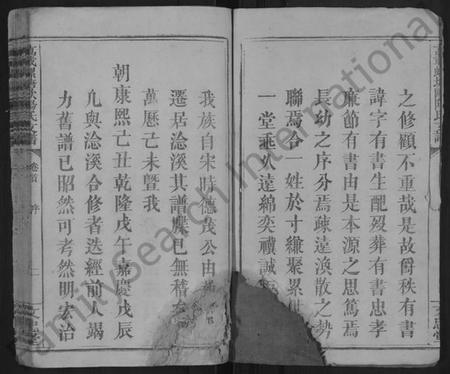 之修顧不重哉是故爵秩有書
諱字有書生配歿葬有書忠孝
廉節有書由是本源之思篤焉
長幼之序分焉疎遠渙散之勢
聯焉合一姓於寸縑聚累世
一堂垂久達綿奕禩誠
我族自宋時德茂公由
遷居淰溪其譜牒已無稽
萬曆己未暨我
朝康熙己丑乾隆戊午嘉慶戊辰
凡與淰溪合修者迭經前人竭
力舊譜已昭然可考然明宏治
卷首
序
FamilySearch International